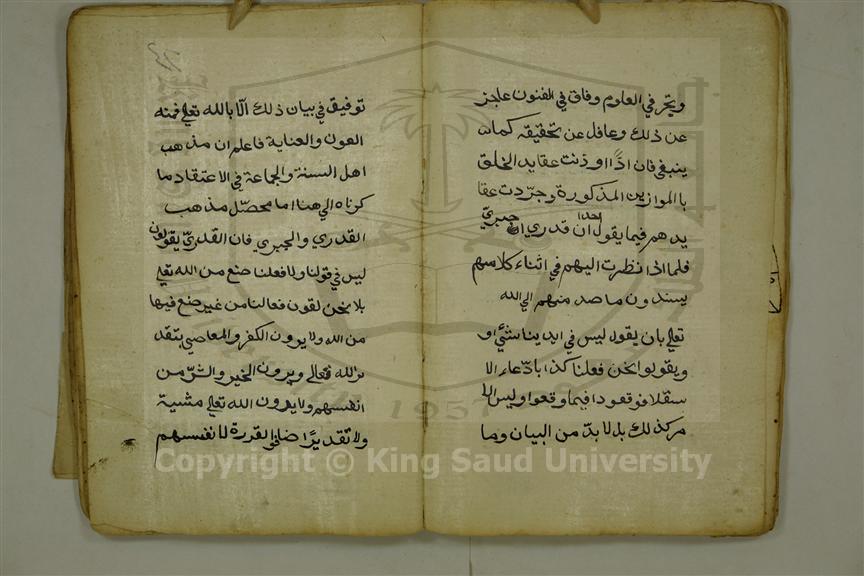 ويتحر في العلوم وفاق في الفنون عاجز
عن ذلك وغافل عن تحقيقه كما
ينبغي فان اذا اوزنت عقايد الخلق
با الموازين المذكورة وجرّدت عقا
يدهم فيما يقول احدا ان قدري او جبريّ
فلما اذا نظرت اليهم في اثناء كلامهم
يسندون ما صد منهم الي الله
تعلي بان يقول ليس في ايدينا شئي او
ويقولوا نحن فعلنا كذا بادّعاء الا
ستقلا فوقعودا فيما وقعوا وليس الا
مر كذلك بل لا بدّ من البيان وما
توفيق في بيان ذلك الّا بالله تعلي فمنه
العون والعناية فاعلم ان مذهب
اهل السنة والجماعة في الاعتقاد ما
كرناه الي هنا اما محصّل مذهب
القدري والجبري فان القدريّ يقولون
ليس في قولنا ولا فعلنا صنع من الله تعلي
بلا نحن لقون فعالنا من غير ضع فيها
من الله ولا يرون الكفر والمعاصي بتقد
ير الله تعالي ويرون الخير والشرّ من
انفسهم ولا يرون الله تعلي مشية
ولا تقديرًا اضافوا القدرة لا نفسهم
Copyright © King Saud University
1957